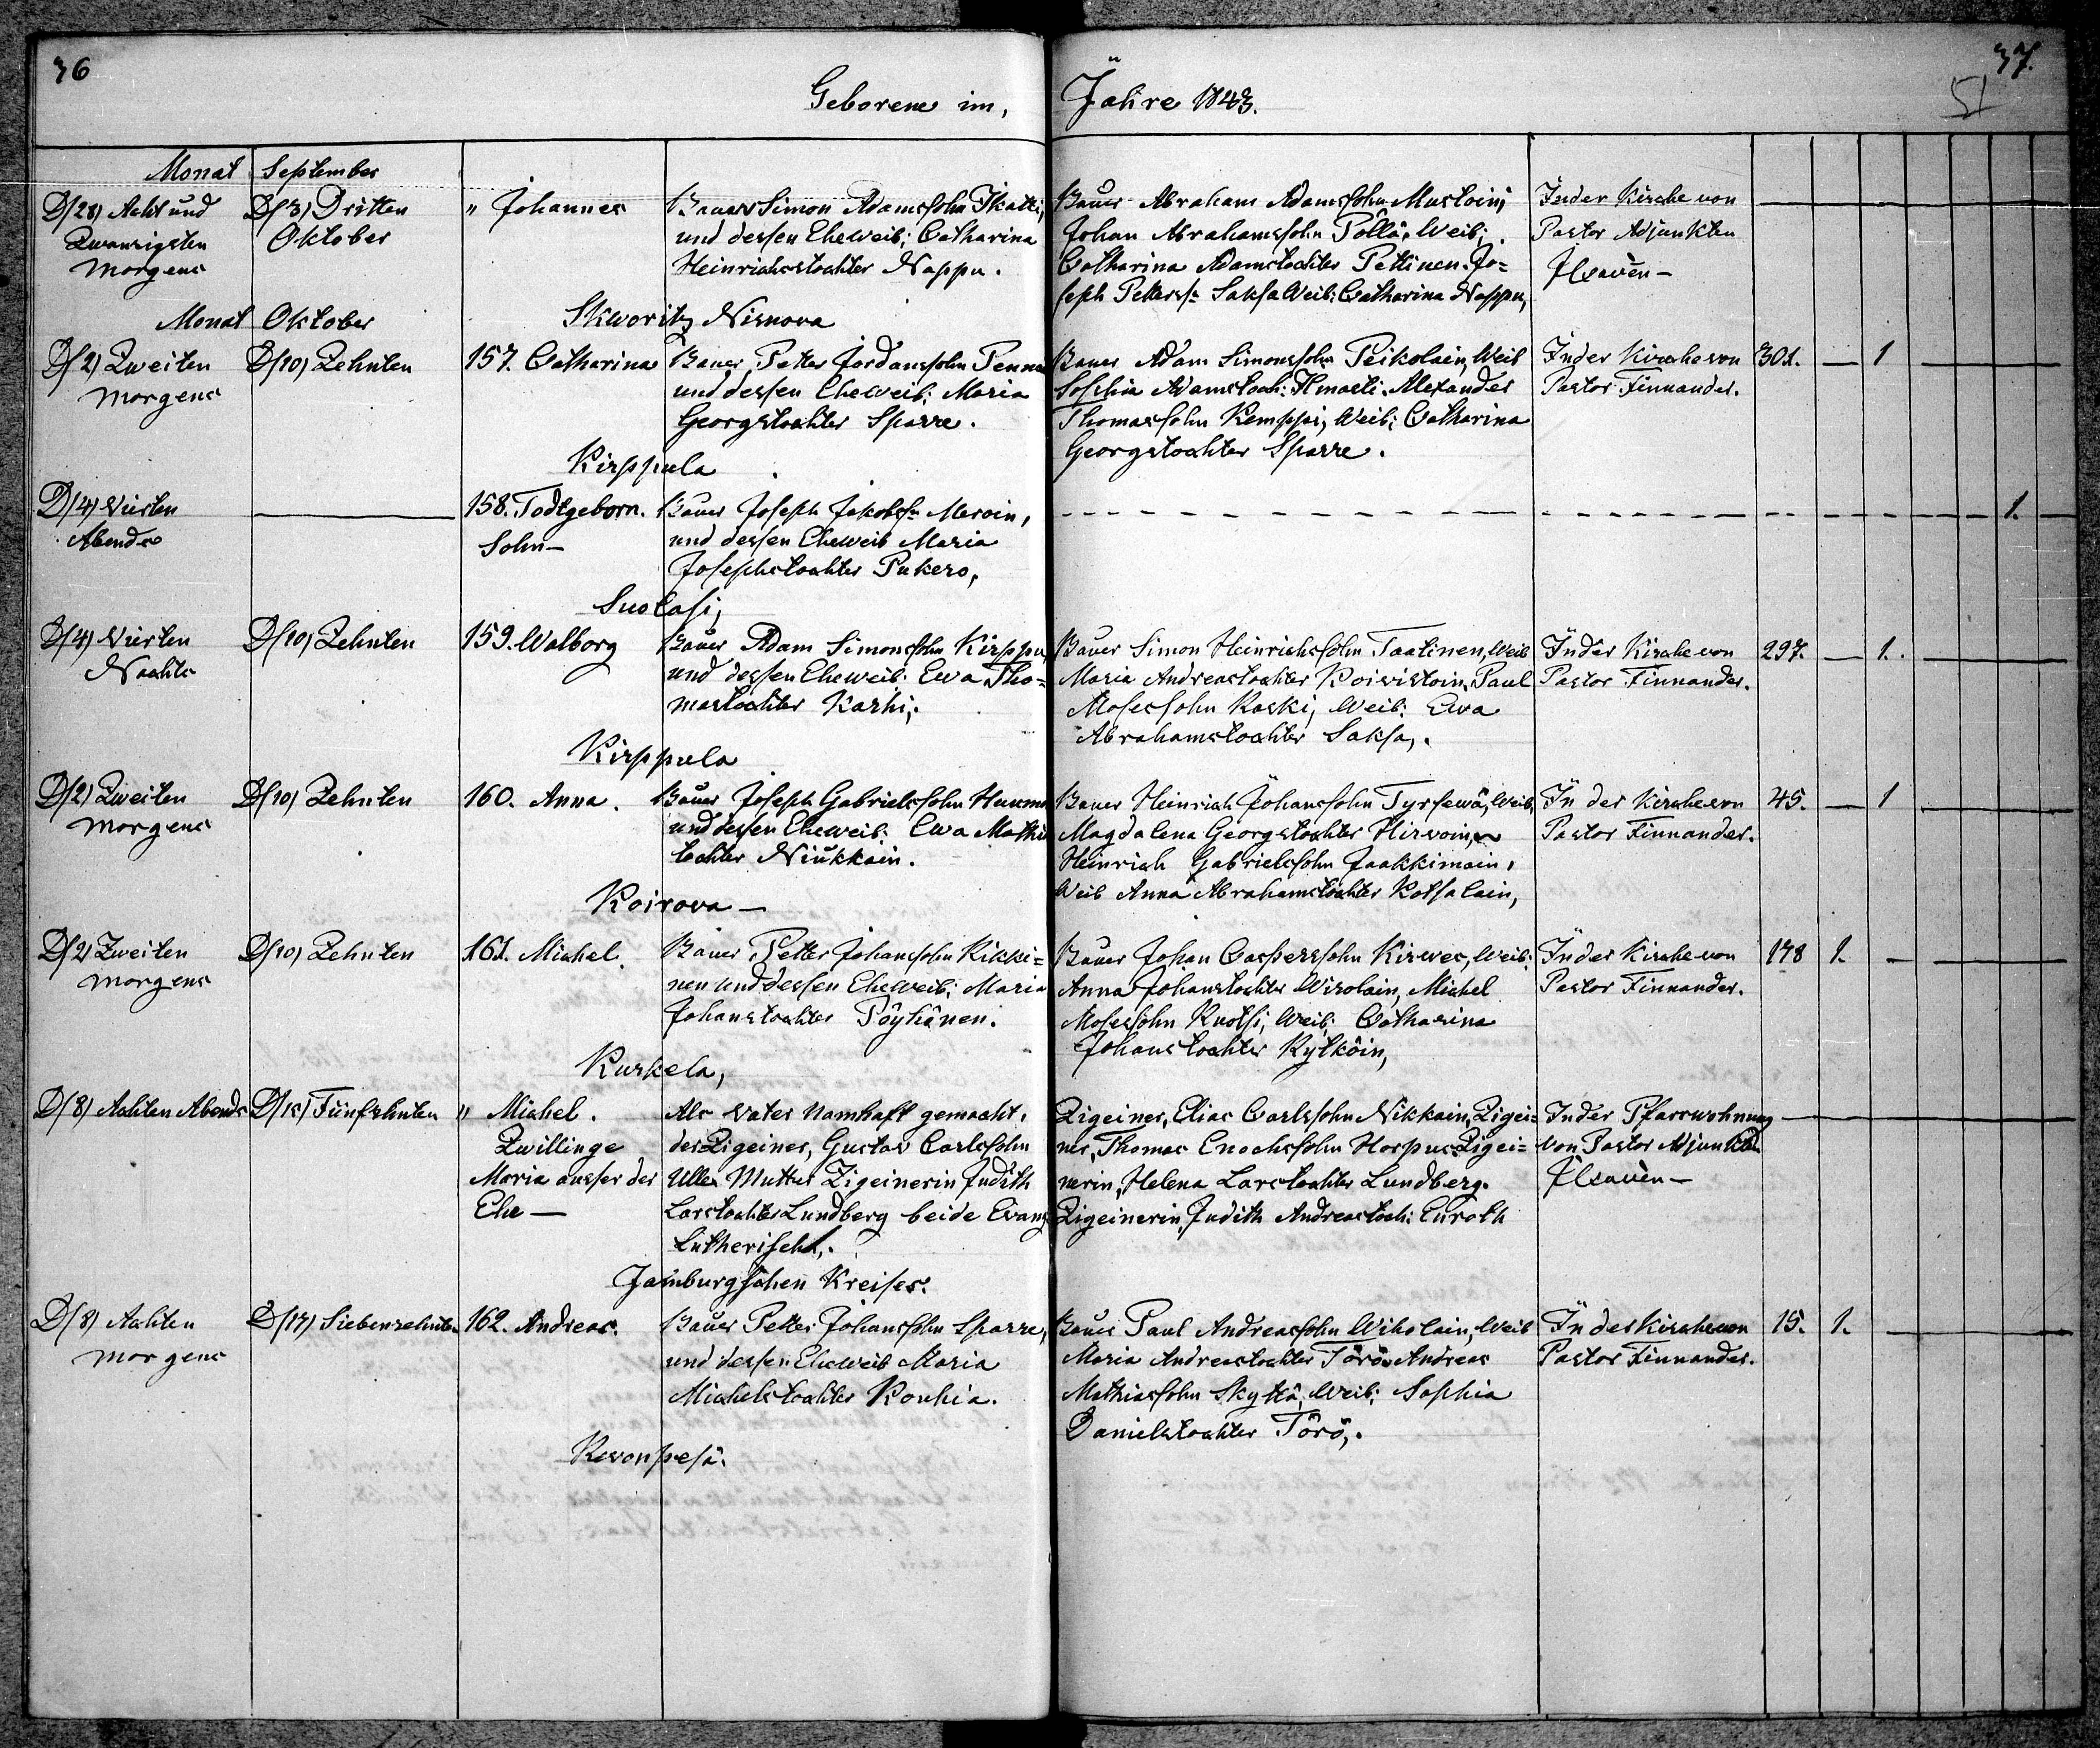 36
37.
51
Geborene im, Jahre 1843.
Monat September
D/28) Acht und
Zwanzigsten
Morgens
D/3) Dritten
Oktober
" Johannes
Bauer Simon Adamssohn Ikatti,
und dessen Eheweib; Catharina
Heinrichstochter Nappu.
Skworitz Nisnova
Bauer Abraham Adamssohn Mustoin;
Johan Abrahamssohn Pöllä, Weib;
Catharina Adamstochter Pettinen. Jo=
seph Petterss: Saksa Weib: Catharina Nappu,
In der Kirche von
Pastor Adjunkten
Ilsavèn –
Monat Oktober
D/2) Zweiten
Morgens
D/10) Zehnten
157. Catharina
Bauer, Petter Jordanssohn Penna
und dessen Eheweib; Maria
Georgstochter Sparre.
Kirppula
Bauer Adam Simonssohn Peikolain, Weib
Sophia Adamstoch: Hmaeli. Alexander
Thomassohn Kemppi, Weib; Catharina
Georgstochter Sparre.
In der Kirche von
Pastor Finnander.
301. — 1
D/4) Vierten
Abends
158. Todtgeborn.
Sohn –
Bauer Joseph Jakobss: Meroin,
und dessen Eheweib Maria
Josephstochter Pukero,
Suolasi,
1.
D/4) Vierten
Nachts
D/10) Zehnten
159. Walborg
Bauer Adam Simonssohn Kirppu,
und dessen Eheweib. Ewa Tho=
mastochter Karhi;
Kirppula
Bauer Simon Heinrichssohn Taatinen, Weib
Maria Andreastochter Koivistoin, Paul
Mosessohn Koski, Weib: Ewa
Abrahamstochter Saksa,.
In der Kirche von
Pastor Finnander.
297. — 1.
D/2) Zweiten
Morgens
D/10) Zehnten
160. Anna.
Bauer Joseph Gabrielssohn
und dessen Eheweib: Ewa
tochter Niukkain.
Koirova –
Bauer Heinrich Johanssohn Tyrsewä, Weib,
Magdalena Georgstochter Hirvoin,
Heinrich Gabrielssohn Jaakkimain,
Weib Anna Abrahamstochter Kotsalain,
In der Kirche von
Pastor Finnander.
45. — 1
D/2) Zweiten
Morgens
D/10) Zehnten
161. Michel.
Bauer, Petter Johanssohn Kikki=
nen und dessen Eheweib; Maria
Johanstochter Pöyhänen.
Kurkela,
Bauer Johan Casperssohn Kirwes, Weib:
Anna Johanstochter Wirolain, Michel
Mosessohn Ruotsi, Weib; Catharina
Johanstochter Kytköin,
In der Kirche von
Pastor Finnander.
178 1.
D/8) Achten Abends
D/15) Fünfzehnten
" Michel.
Zwillinge
Maria ausser der
Ehe –
Als Vater namhaft gemacht,
der Zigeiner, Gustav Carlssohn
Ulle. Mutter Zigeinerin Judith
Larstochter Lundberg beide Evang
Lutherisch,.
Jamburgschen Kreises:
Zigeiner, Elias Carlssohn Nikkain, Zigei=
ner, Thomas Enochssohn Horpus Zigei=
nerin, Helena Larstochter Lundberg.
Zigeinerin, Judith Andreastoch: Euroth
In der Pfarrwohnung
von Pastor Adjunkten
Ilsavèn –
D/8) Achten
Morgens
D/17) Siebenzehnten
162. Andreas.
Bauer Petter Johanssohn Sparre,
und dessen Eheweib Maria
Michelstochter Rouhia.
Rewonpesä.
Bauer Paul Andreassohn Wiholain, Weib
Maria Andreastochter Törö. Andreas
Mathiassohn Skyttä, Weib; Sophia
Danielstochter Törö,.
In der Kirche von
Pastor Finnander.
15. 1.